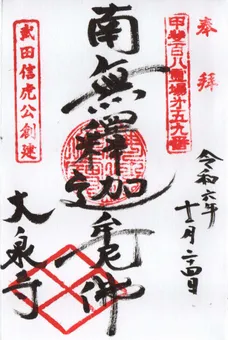 奉拝
甲斐百八霊場第五九番
南無釋迦牟尼佛
武田信虎公創建
令和六年
十一月二十四日
大泉寺